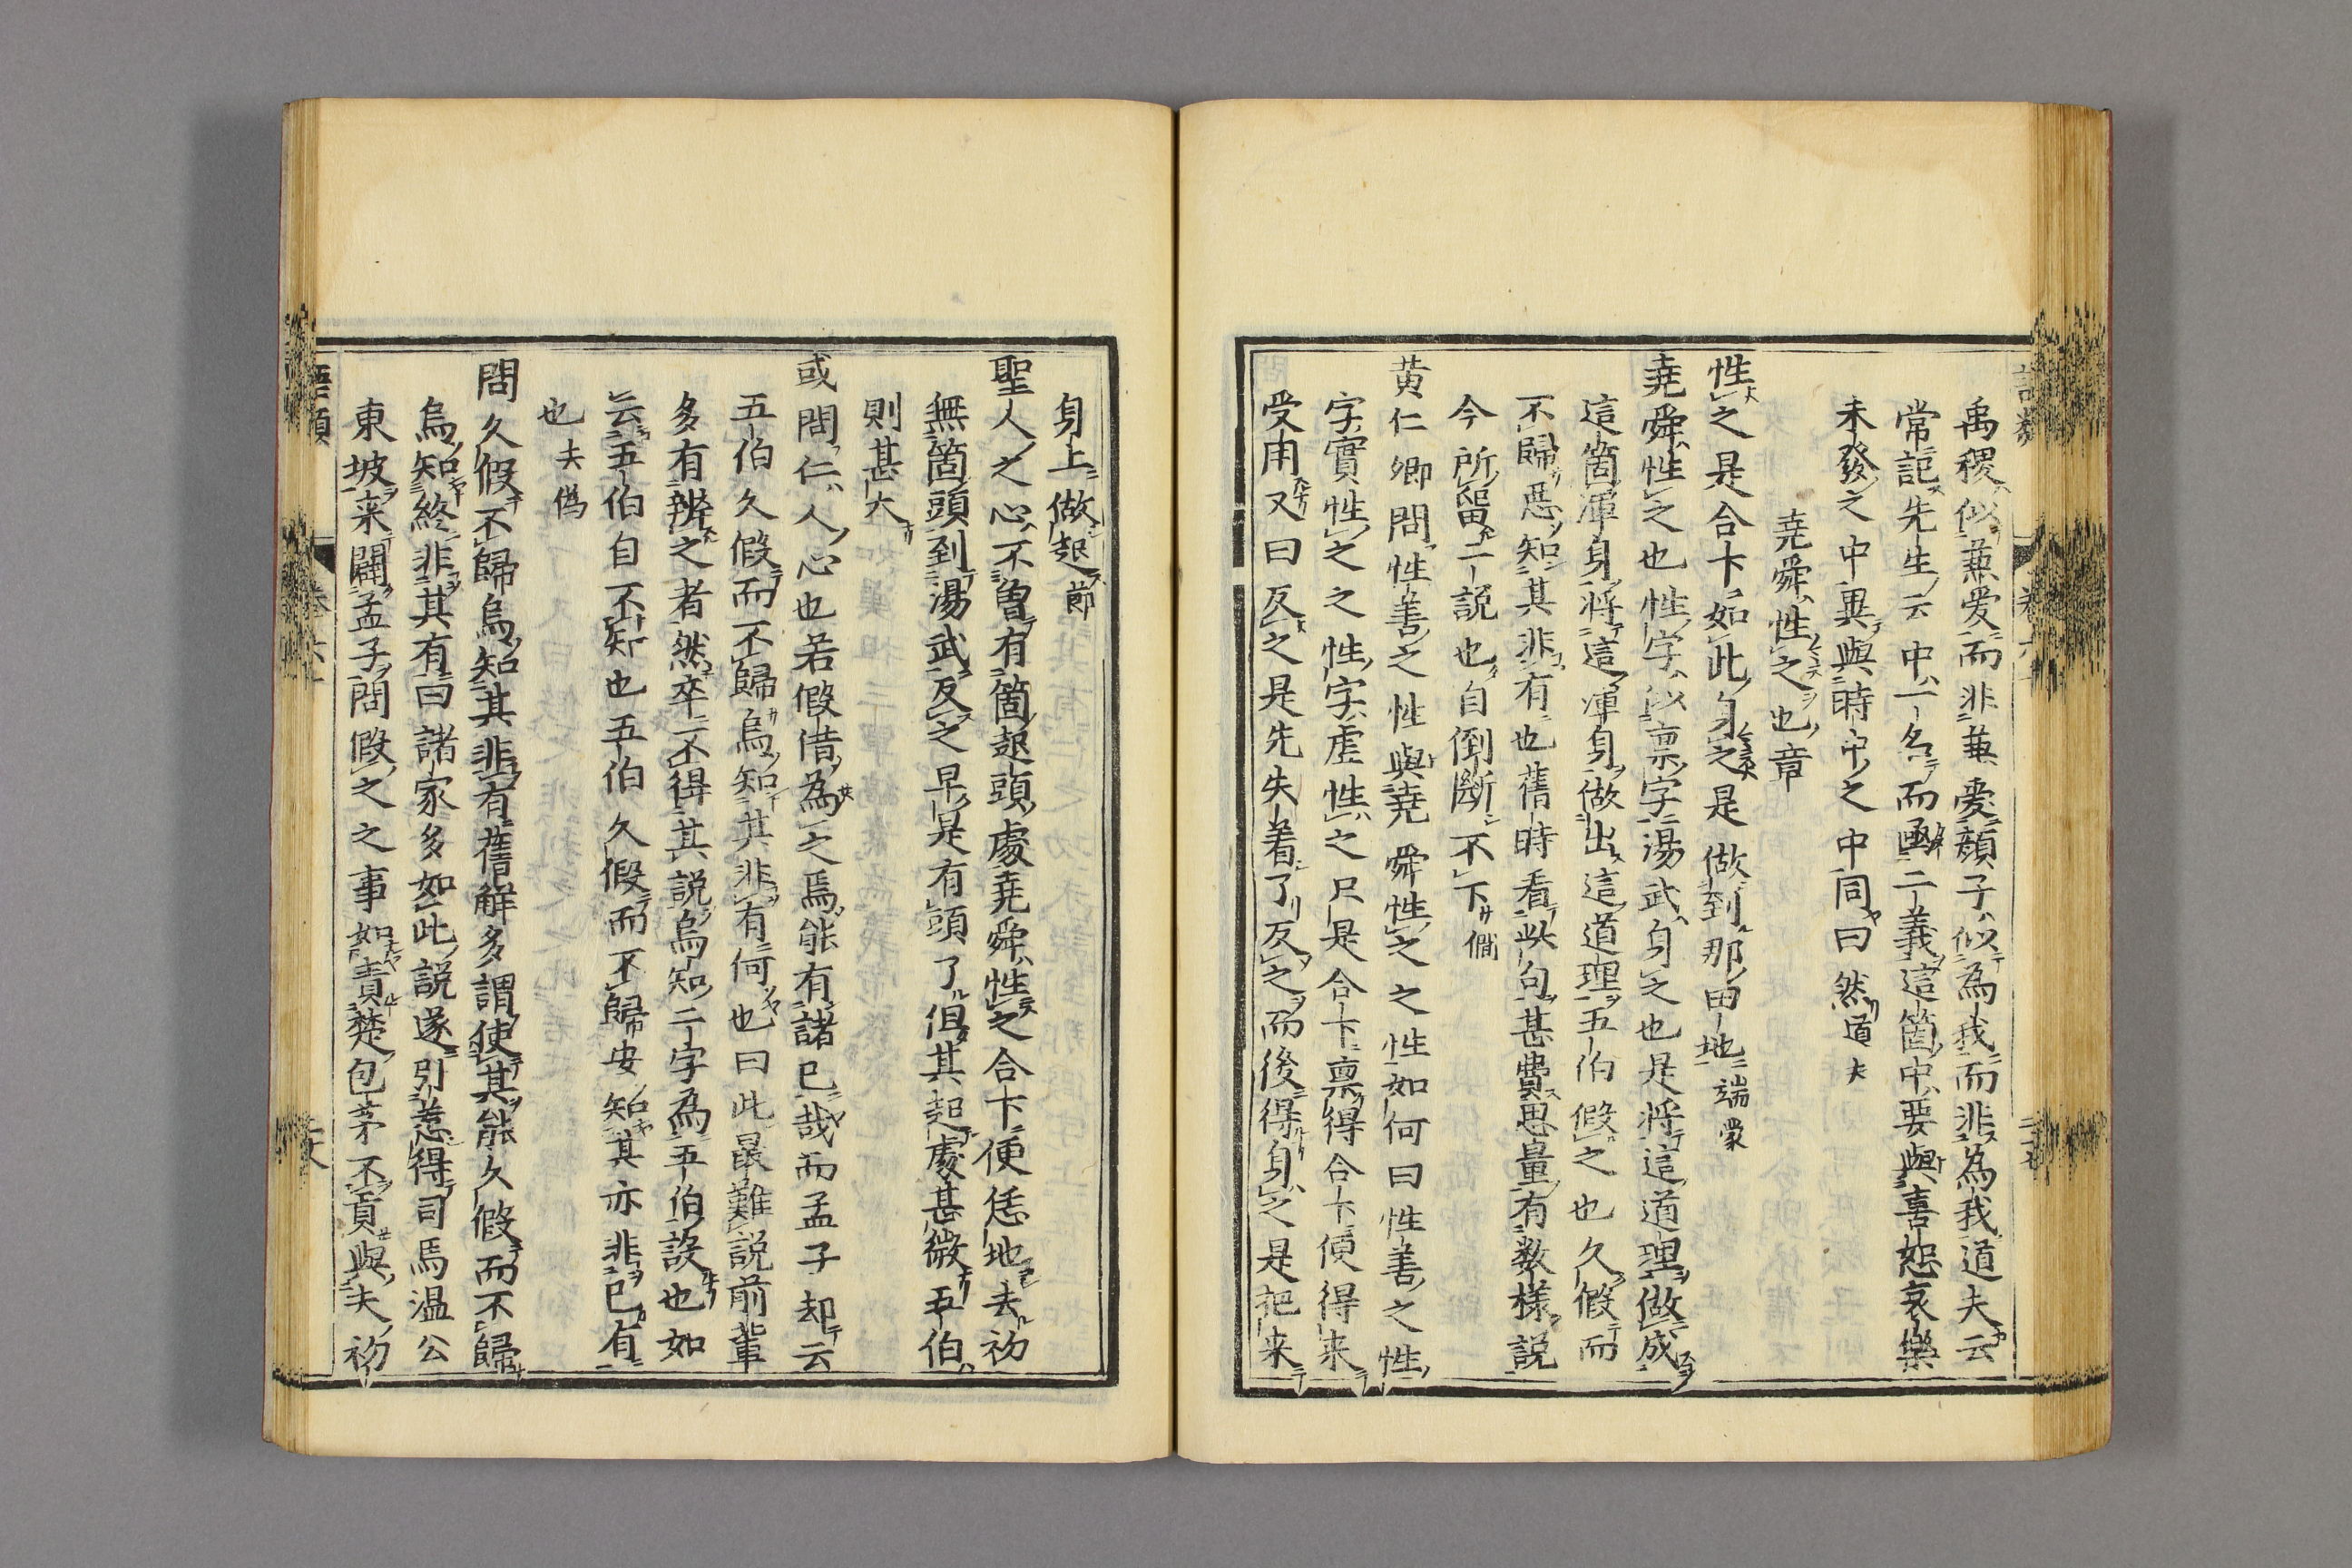 禹稷似兼愛而非兼愛顏子似為我而非為我道夫云
常記先生云中一名而函二義這箇中要與喜怒哀樂
未發之中異與時中之中同曰然道夫
堯舜性之也章
性之是合下如此身之是做到那田地端蒙
堯舜性之也性字似禀字湯武身之也是將這道理做成
這箇渾身將這渾身做出這道理五伯假之也久假而
不歸惡知其非有也舊時看此句甚費思量有数樣説
今所留二説也自倒斷不下僩
黃仁卿問性善之性與堯舜性之之性如何曰性善之性
字實性之之性字虚性之只是合下禀得合下便得来
受用又曰反之是先失着了反之而後得身之是把来
身上做起節
聖人之心不曽有箇起頭處堯舜性之合下便恁地去初
無箇頭到湯武反之早是有頭了但其起處甚微五伯
則甚大
或問仁人心也若假借為之焉能有諸己哉而孟子却云
五伯久假而不歸烏知其非有何也曰此最難説前輩
多有辨之者然卒不得其説烏知二字為五伯設也如
云五伯自不知也五伯久假而不歸安知其亦非己有
也去偽
問久假不歸烏知其非有舊解多謂使其能久假而不歸
烏知終非其有曰諸家多如此説遂引惹得司馬温公
東坡来闢孟子問假之之事如責楚包茅不貢與夫初
語類
卷六十